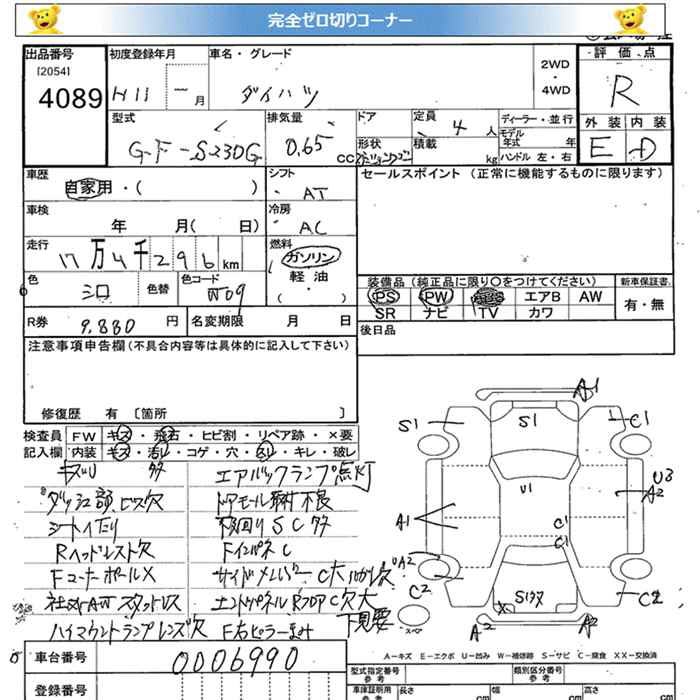 完全ゼロ切りコーナー
出品番号 初度登録年月 車名・グレード 評価点
[2054] 2WD
4089 H11 年 月 ダイハツ ・ 4WD R
型式 排気量 ドア 定員 ディーラー・並行 外装 内装
GF-S230G 0.65 CC 4人 モデル年式 年 E D
形状 積載 kg ハンドル 左・右
車歴 シフト セールスポイント (正常に機能するものに限ります)
自家用・( ) AT
車検 冷房
年 月( 日) AC
走行 燃料
17万4千296km ガソリン
色 色替 色コード 軽油
シロ W09 ( ・ )
装備品 (純正品に限り〇をつけてください) 新車保証書
PS PW ABS エアB AW 有・無
SR ナビ TV カワ
R券 9,880 円 名変期限 月 日 後日品
注意事項申告欄(不具合内容等は具体的に記入して下さい)
修復歴 有 〔箇所 〕
検査員 FW キズ・飛石・ヒビ割・リペア跡・×要
記入欄 内装 キズ・汚レ・コゲ・穴・スレ・キレ・破レ
キズU 多 エアバックランプ点灯
ダッシュ部ビス欠 ドアモール取付不良
シートイタミ 下回りSC多
Rヘッドレスト欠 FインパネC
FコーナーポールX サイドメンバーC大
社外AWスタッドレス エンドパネルRフロアC欠大
ハイマウントランプレンズ欠 F右ピラー 下見要
A1
S1 S1 C1
U3
U1 A2
A1 C1
C1
A2
C2 S1 C2
X
スペアー A2 A2
A-キズ E-エクボ U-凹み W-補修跡 S-サビ C-腐食 XX-交換済
車台番号 0006990 型式指定番号 参考 類別区分番号 参考
登録番号 車庫証明用 参考 長さ cm 幅 cm 高さ cm